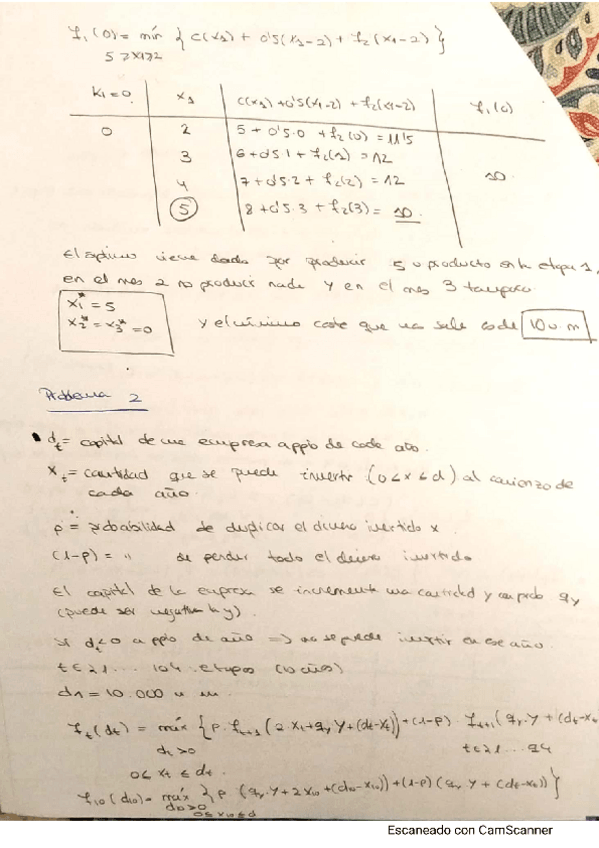 f₁(0) = mín { C(x₁) + 0'5(x₁-2) + f₂(x₁-2) }
5≥x₁≥2
K₁=0 | x₁ | C(x₁)+0'5(x₁-2)+f₂(x₁-2) | f₁(0)
0 | 2 | 5+0'5·0+f₂(0)=11'5
3 | 6+0'5·1+f₂(1)=12
4 | 7+0'5·2+f₂(2)=12 | 10
5 | 8+0'5·3+f₂(3)=10
El óptimo viene dado por producir 5 u producto en la etapa 1,
en el mes 2 no producir nada y en el mes 3 tampoco
x₁*=5
x₂*=x₃*=0 y el mínimo coste que nos sale es de 10 u.m
Problema 2
• dₜ= capital de una empresa a ppio de cada año.
xₜ= cantidad que se puede invertir (0≤x≤d) al comienzo de
cada año.
p = probabilidad de duplicar el dinero invertido x
(1-p) = " de perder todo el dinero invertido
El capital de la empresa se incrementa una cantidad y con prob qy
(puede ser negativa la y).
Si dₜ<0 a ppio de año => no se puede invertir en ese año.
t∈{1...10} etapas (10 años)
d₁ = 10.000 u m.
fₜ(dₜ) = máx {p·fₜ₊₁(2·xₜ+qy·y+(dₜ-xₜ))+(1-p)·fₜ₊₁(qy·y+(dₜ-xₜ
dₜ>0 t∈{1...9}
0≤xₜ≤dₜ.
f₁₀(d₁₀)= máx {p (qy·y+2x₁₀+(d₁₀-x₁₀))+(1-p)(qy y+(dₜ-xₜ))}
d₁₀>0
0≤x₁₀≤d
Escaneado con CamScanner